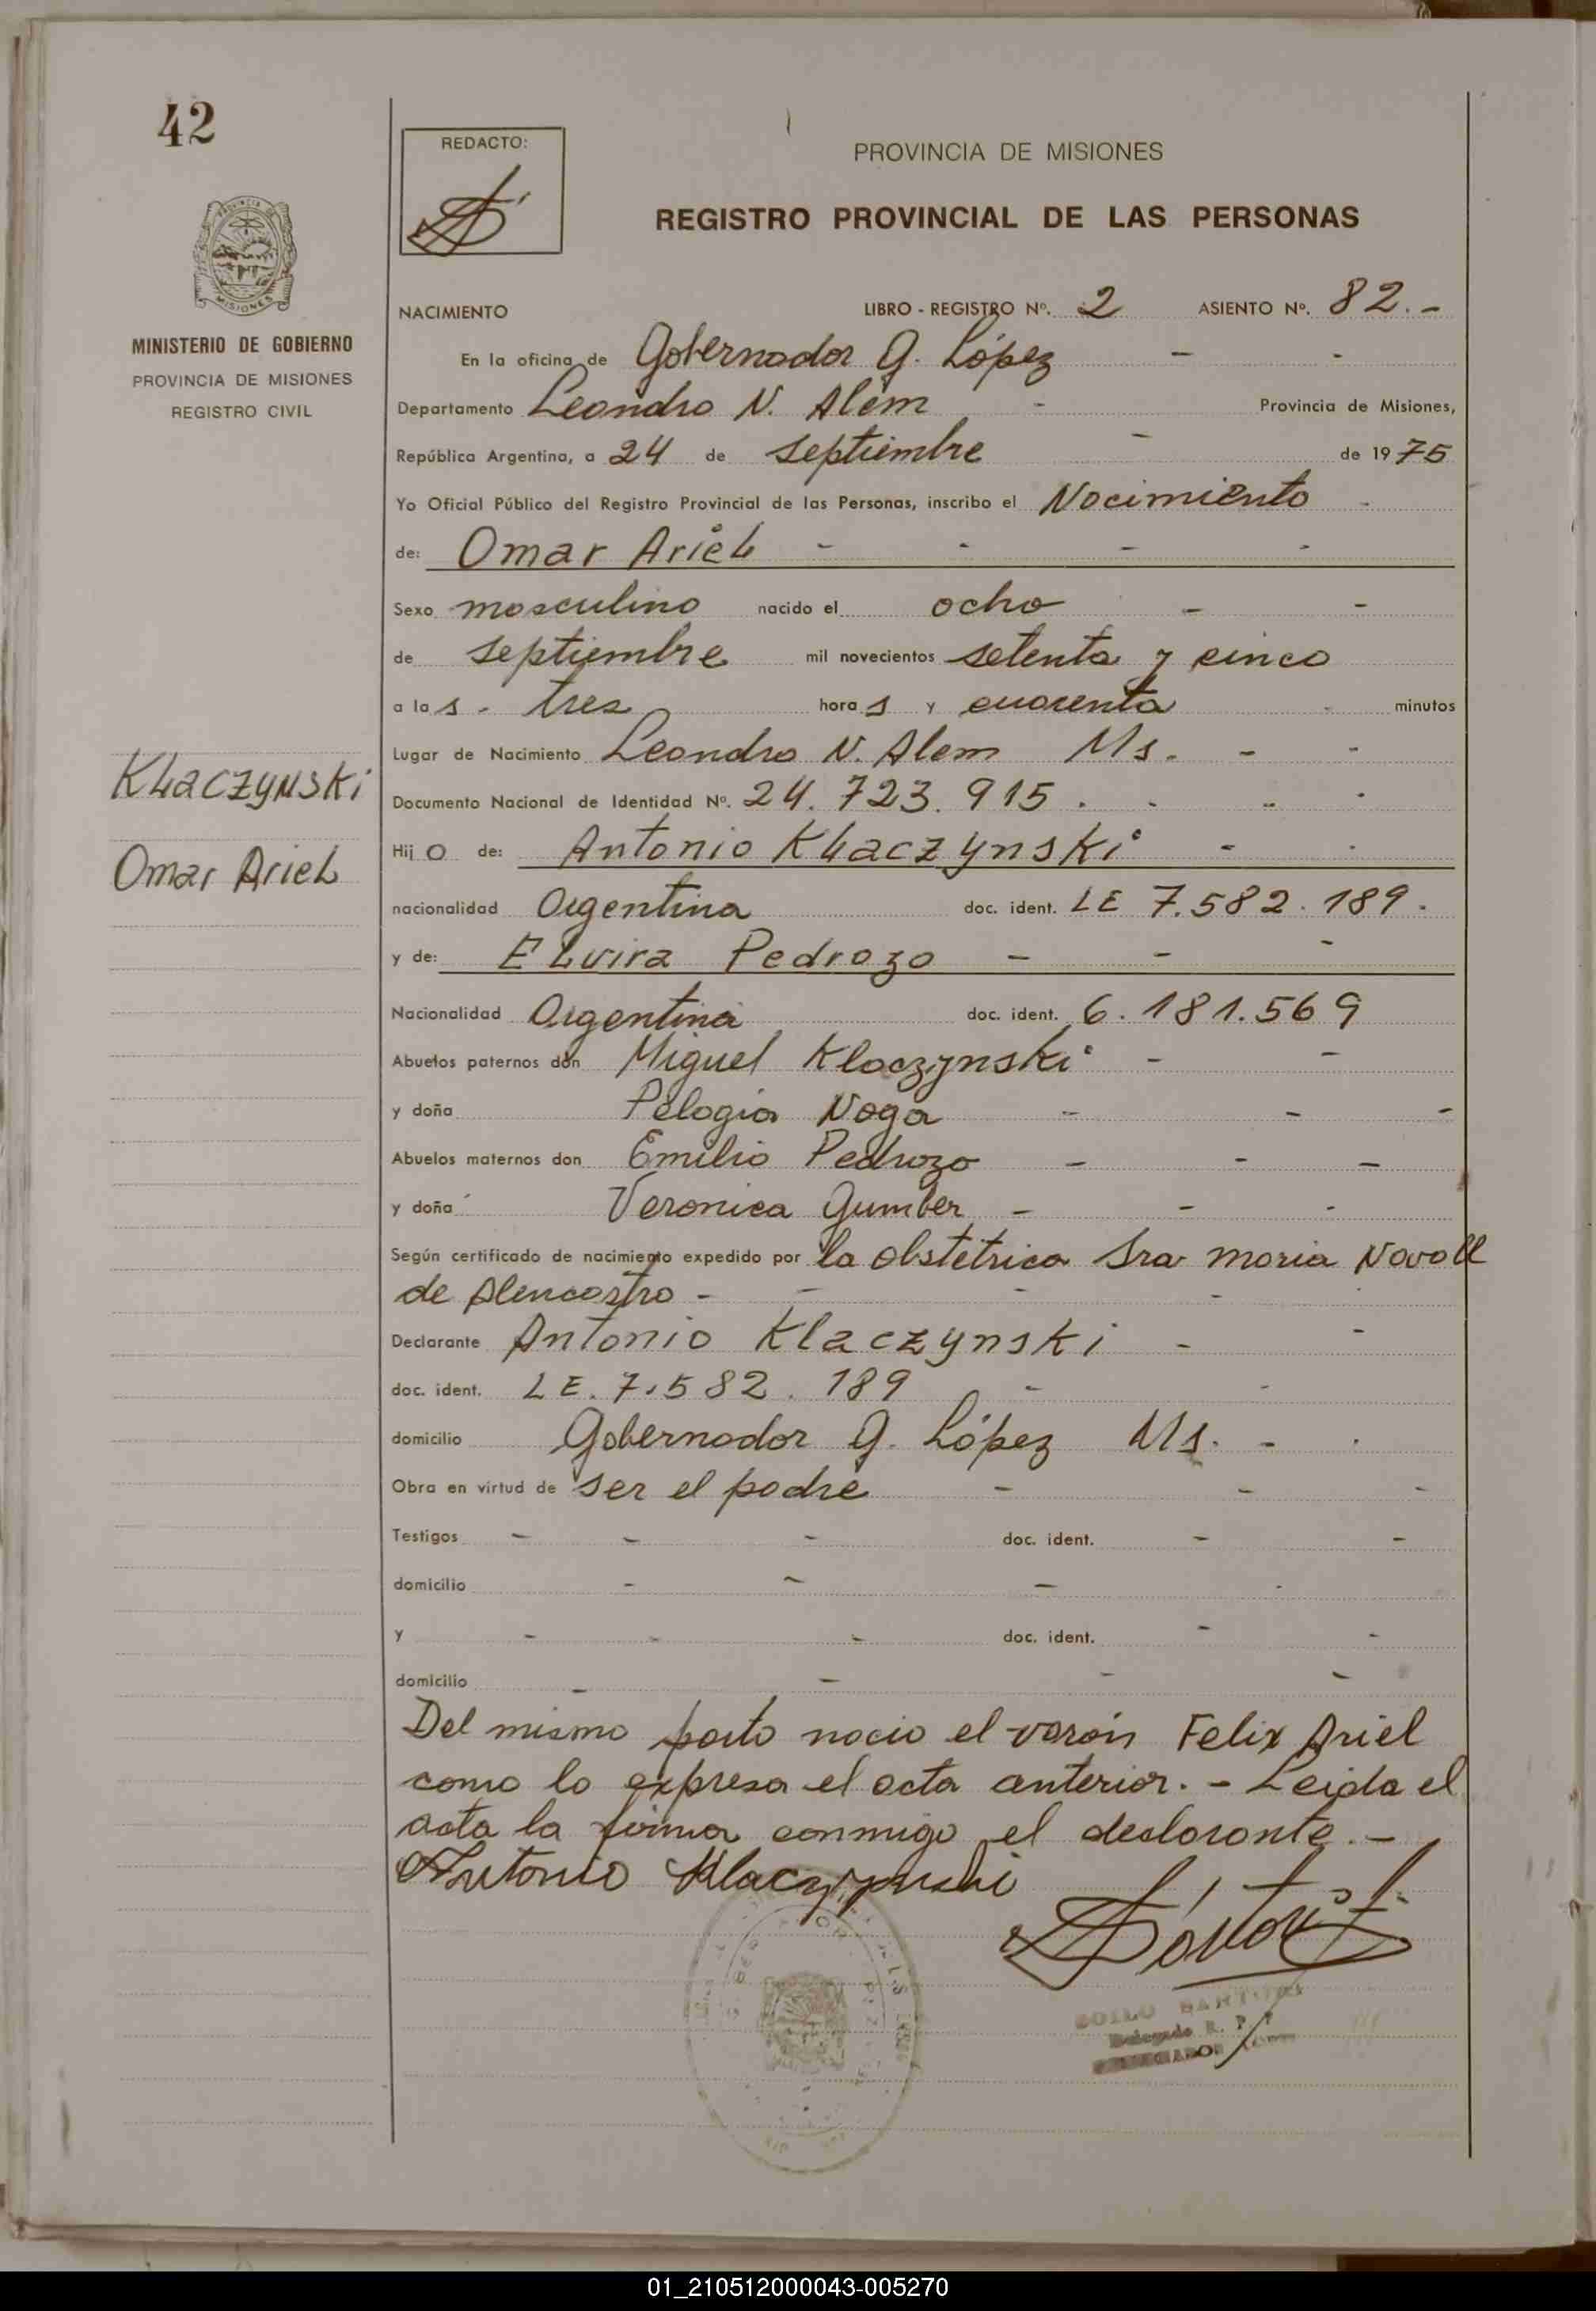 42
REDACTO:
PROVINCIA DE MISIONES
REGISTRO PROVINCIAL DE LAS PERSONAS
MISIONES
MINISTERIO DE GOBIERNO
PROVINCIA DE MISIONES
REGISTRO CIVIL
NACIMIENTO LIBRO - REGISTRO Nº. 2 ASIENTO Nº. 82.-
En la oficina de Gobernador G. López - -
Departamento Leandro N. Alem - Provincia de Misiones,
República Argentina, a 24 de septiembre - de 1975
Yo Oficial Público del Registro Provincial de las Personas, inscribo el Nacimiento -
de: Omar Ariel - - - -
Sexo masculino nacido el ocho - -
de septiembre mil novecientos setenta y cinco
a las - tres horas y cuarenta - minutos
Lugar de Nacimiento Leandro N. Alem Ms. - -
Klaczynski
Documento Nacional de Identidad Nº. 24.723.915 . - - -
Omar Ariel
Hijo de: Antonio Klaczynski - -
nacionalidad Argentina doc. ident. LE 7.582.189.
y de: Elvira Pedrozo - - -
Nacionalidad Argentina doc. ident. 6.181.569
Abuelos paternos don Miguel Klaczynski - -
y doña Pelagia Noga - - -
Abuelos maternos don Emilio Pedrozo - - -
y doña Veronica Gumber - - -
Según certificado de nacimiento expedido por la obstétrica Sra maria Navoll
de Alencastro - - - -
Declarante Antonio Klaczynski - -
doc. ident. LE. 7.582.189 - -
domicilio Gobernador G. López Ms. - -
Obra en virtud de ser el padre - - -
Testigos - - - doc. ident. - -
domicilio - - - -
y - - - doc. ident. - -
domicilio - - - -
Del mismo parto nacio el varón Felix Ariel
como lo expresa el acta anterior. - Leida el
acta la firma conmigo el declarante.-
Antonio Klaczynski
Delegado R. P. P.
01_210512000043-005270